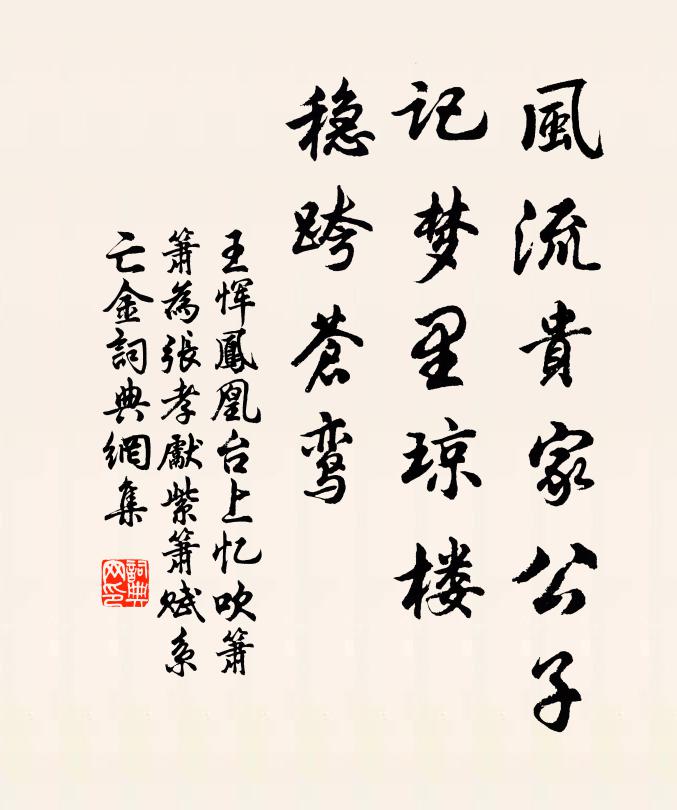 風流貴家公子
记梦里琼楼
稳跨蒼鸾
王惲鳳凰台上忆吹簫
簫為張孝獻紫簫賦系
亡金詞典網集
詞典
网印